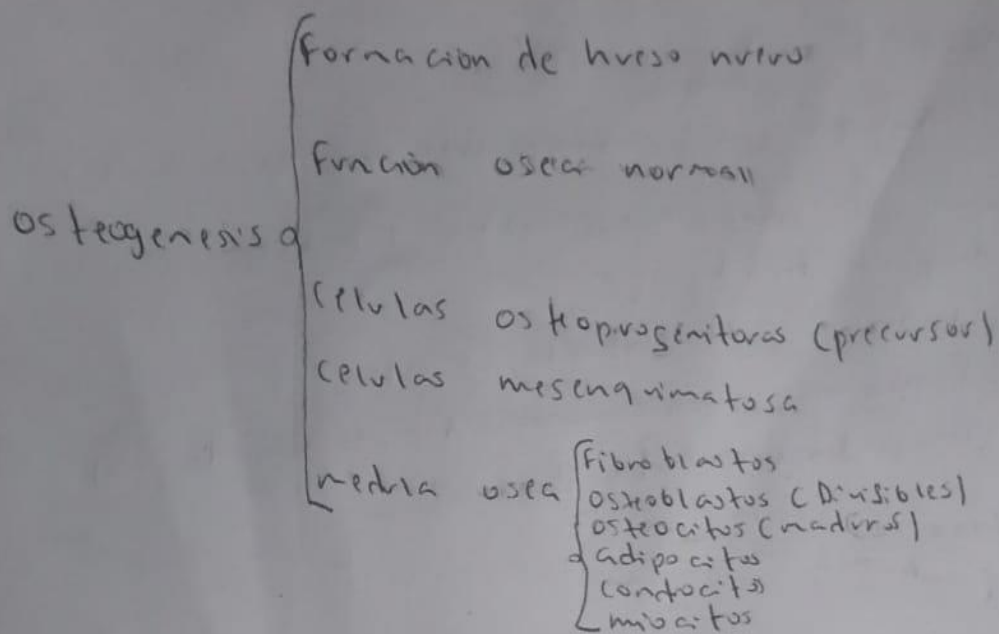 Formacion de hueso nuevo
Función osea normal
osteogenesis
Celulas osteoprogenitoras (precursor)
Celulas mesenquimatosa
medula osea
Fibroblastos
osteoblastos (Divisibles)
osteocitos (maduros)
adipocitos
condocitos
miocitos